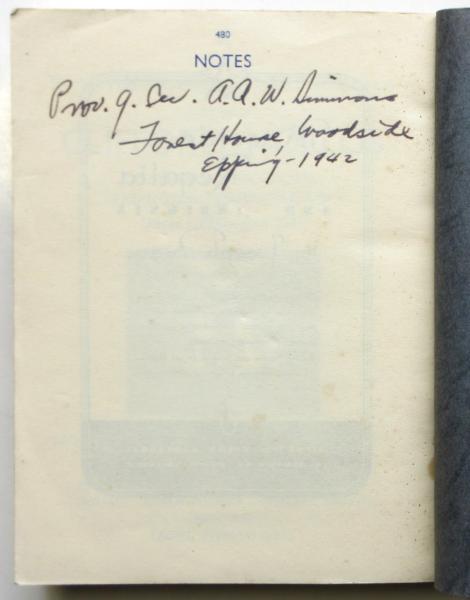 480
NOTES
Prov. G. Sec. A.A.W. Simmons
Forest House Woodside
Epping - 1942